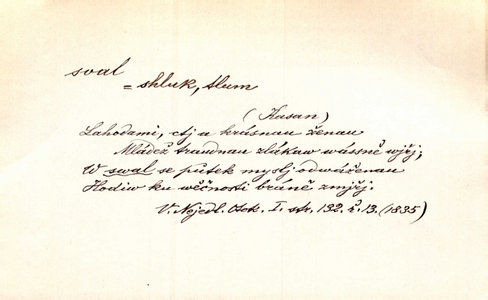 sval
= shluk, tlum
(Kusan)
Lahodami, ctj a krásnau ženau
Mládež traudnau zlákaw wášně wjřj;
W swal se pútek myslj odwáženau
Hodiw ku wěčnosti bráně zmjřj.
V. Nejedl. Otok. I. str. 192. ř. 13. (1835)